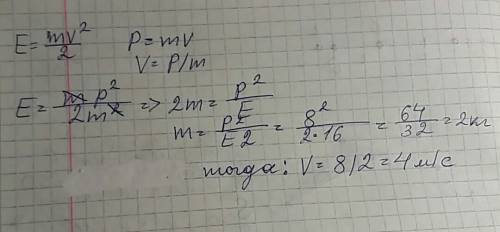 E = mv²/2    P = mv
V = P/m
E = m p²/2m² => 2m = p²/E
m = p²/E2 = 8²/2·16 = 64/32 = 2кг
тогда: V = 8/2 = 4 м/с